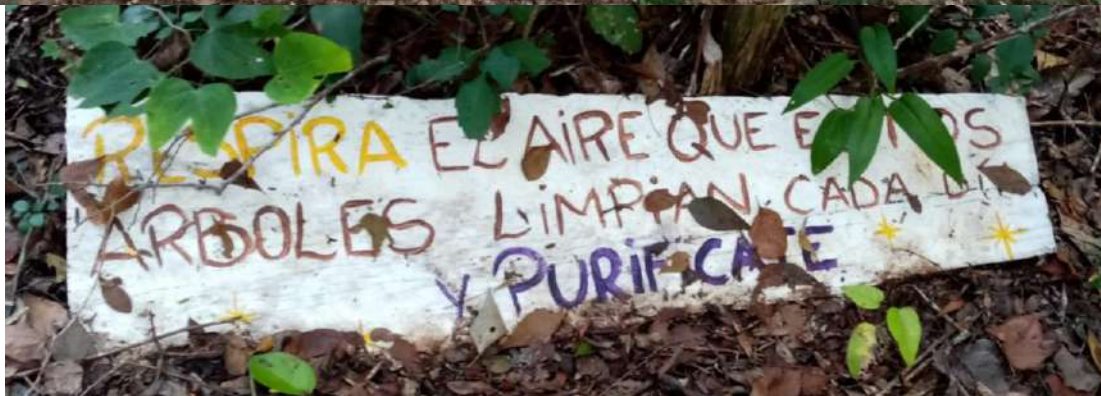 RESPIRA EL AIRE QUE ESTOS
ARBOLES LIMPIAN CADA DIA
Y PURIFICATE